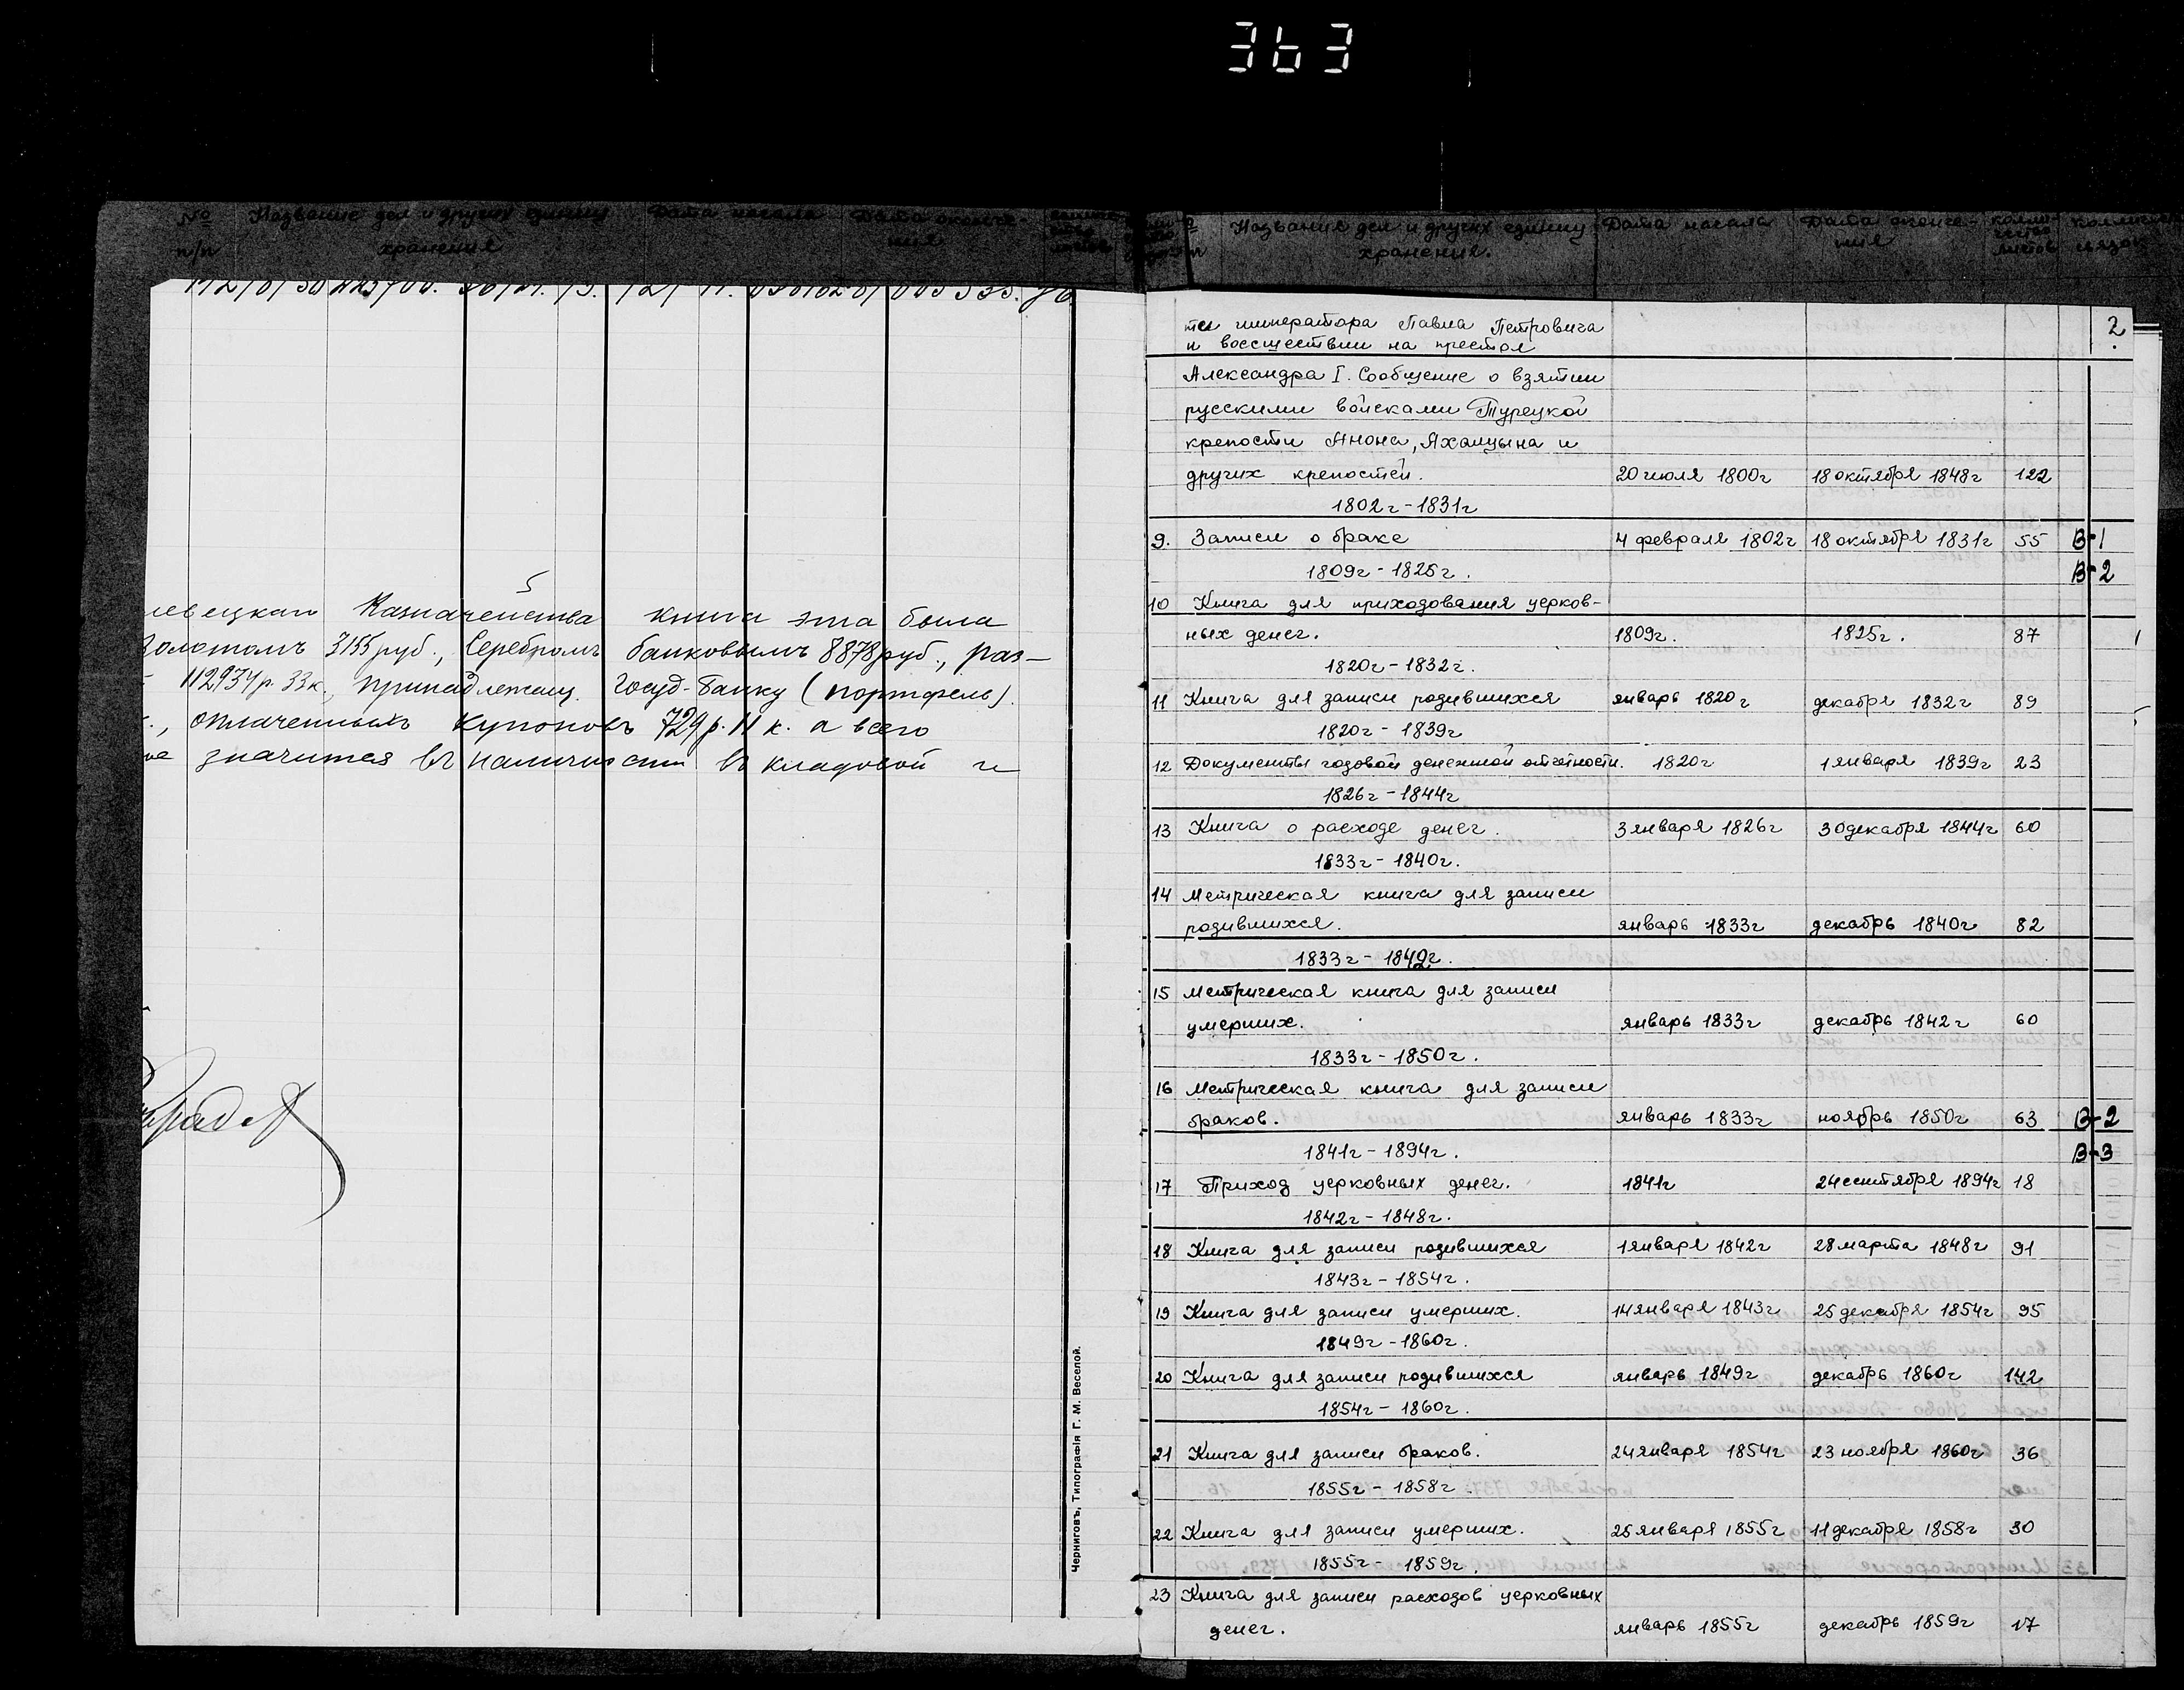 363
№ Название дел и других единиц Дата начала Дата оконча-
п/п хранения ния
левецкаго Казначейства книга эта была
Золотомъ 3155 руб., Серебромъ банковымъ 8878 руб., раз-
112934 р. 33 к., принадлежащ. Госуд. Банку (портфель).
оплаченныхъ купоновъ 729 р. 11 к. а всего
значится въ наличности въ кладовой и
Черниговъ, Типографія Г. М. Веселой.
Название дел и других единиц Дата начала Дата оконча- количество листов
хранения. ния
2
ти императора Павла Петровича
и восшествии на престол
Александра I. Сообщение о взятии
русскими войсками Турецкой
крепости Анона, Ахалцына и
других крепостей. 20 июля 1800г 18 октября 1848г 122
1802г - 1831г
9. Записи о браке 4 февраля 1802г 18 октября 1831г 55 В-1
1809г - 1825г. В-2
10 Книга для приходования церков-
ных денег. 1809г. 1825г. 87
1820г - 1832г.
11 Книга для записи родившихся январь 1820г декабря 1832г 89
1820г - 1839г
12 Документы годовой денежной отчетности. 1820г 1 января 1839г 23
1826г - 1844г
13 Книга о расходе денег. 3 января 1826г 30 декабря 1844г 60
1833г - 1840г.
14 Метрическая книга для записи
родившихся. январь 1833г декабрь 1840г 82
1833г - 1842г.
15 Метрическая книга для записи
умерших. январь 1833г декабрь 1842г 60
1833г - 1850г.
16 Метрическая книга для записи
браков. январь 1833г ноябрь 1850г 63 В-2
1841г - 1894г. В-3
17 Приход церковных денег. 1841г 24 сентября 1894г 18
1842г - 1848г.
18 Книга для записи родившихся 1 января 1842г 28 марта 1848г 91
1843г - 1854г.
19 Книга для записи умерших. 14 января 1843г 25 декабря 1854г 95
1849г - 1860г.
20 Книга для записи родившихся январь 1849г декабрь 1860г 142
1854г - 1860г.
21 Книга для записи браков. 24 января 1854г 23 ноября 1860г 36
1855г - 1858г.
22 Книга для записи умерших. 25 января 1855г 11 декабря 1858г 30
1855г - 1859г.
23 Книга для записи расходов церковных
денег. январь 1855г декабрь 1859г 17